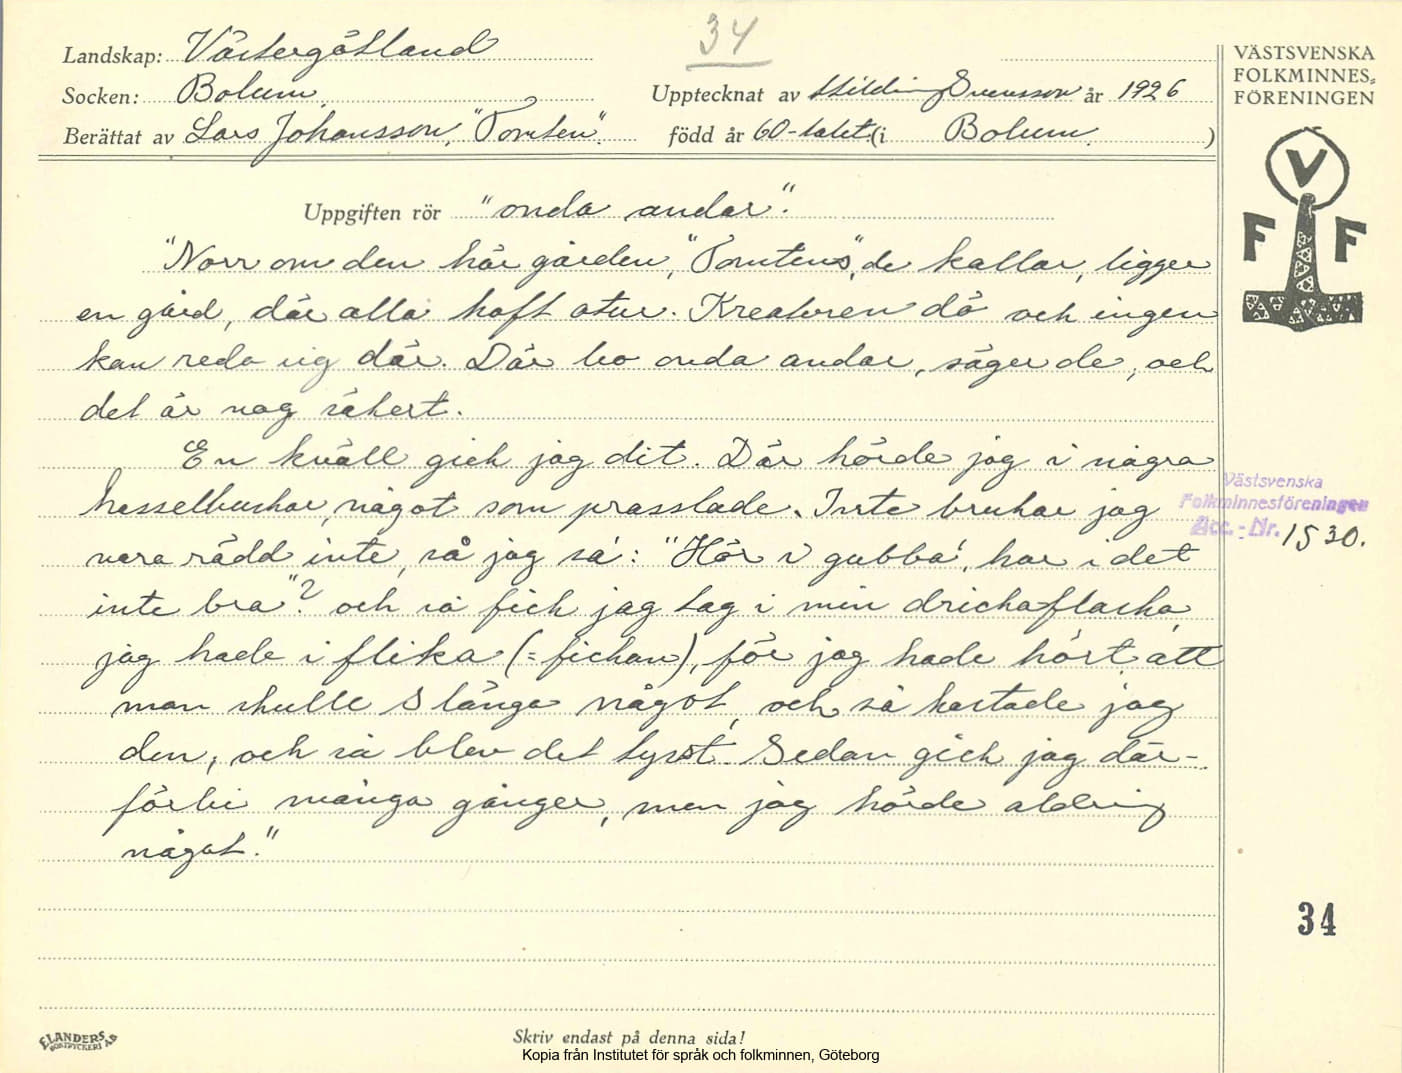 34
Landskap: Västergötland
Socken: Bolum.
Upptecknat av Hilding Svensson år 1926
Berättat av Lars Johansson, "Tomten". född år 60-talet. (i Bolum. )
VÄSTSVENSKA
FOLKMINNES-
FÖRENINGEN
V
F F
Uppgiften rör "onda andar".
"Norr om den här gården, "Tomtens", de kallar, ligger
en gård, där alla haft otur. Kreaturen dö och ingen
kan reda sig där. Där bo onda andar, säger de, och
det är nog säkert.
En kväll gick jag dit. Där hörde jag i några
hasselbuskar, något som prasslade. Inte brukar jag
vara rädd inte, så jag sa: "Hör i gubba', har i det
inte bra"? och så fick jag tag i min drickaflaska,
jag hade i flika (=fickan), för jag hade hört att
man skulle slänga något, och så kastade jag
den, och så blev det tyst. Sedan gick jag där-
förbi många gånger, men jag hörde aldrig
något."
Västsvenska
Folkminnesföreningen
Acc.-Nr. 1530.
34
ELANDERS
BOKTRYCKERI AB
Skriv endast på denna sida!
Kopia från Institutet för språk och folkminnen, Göteborg